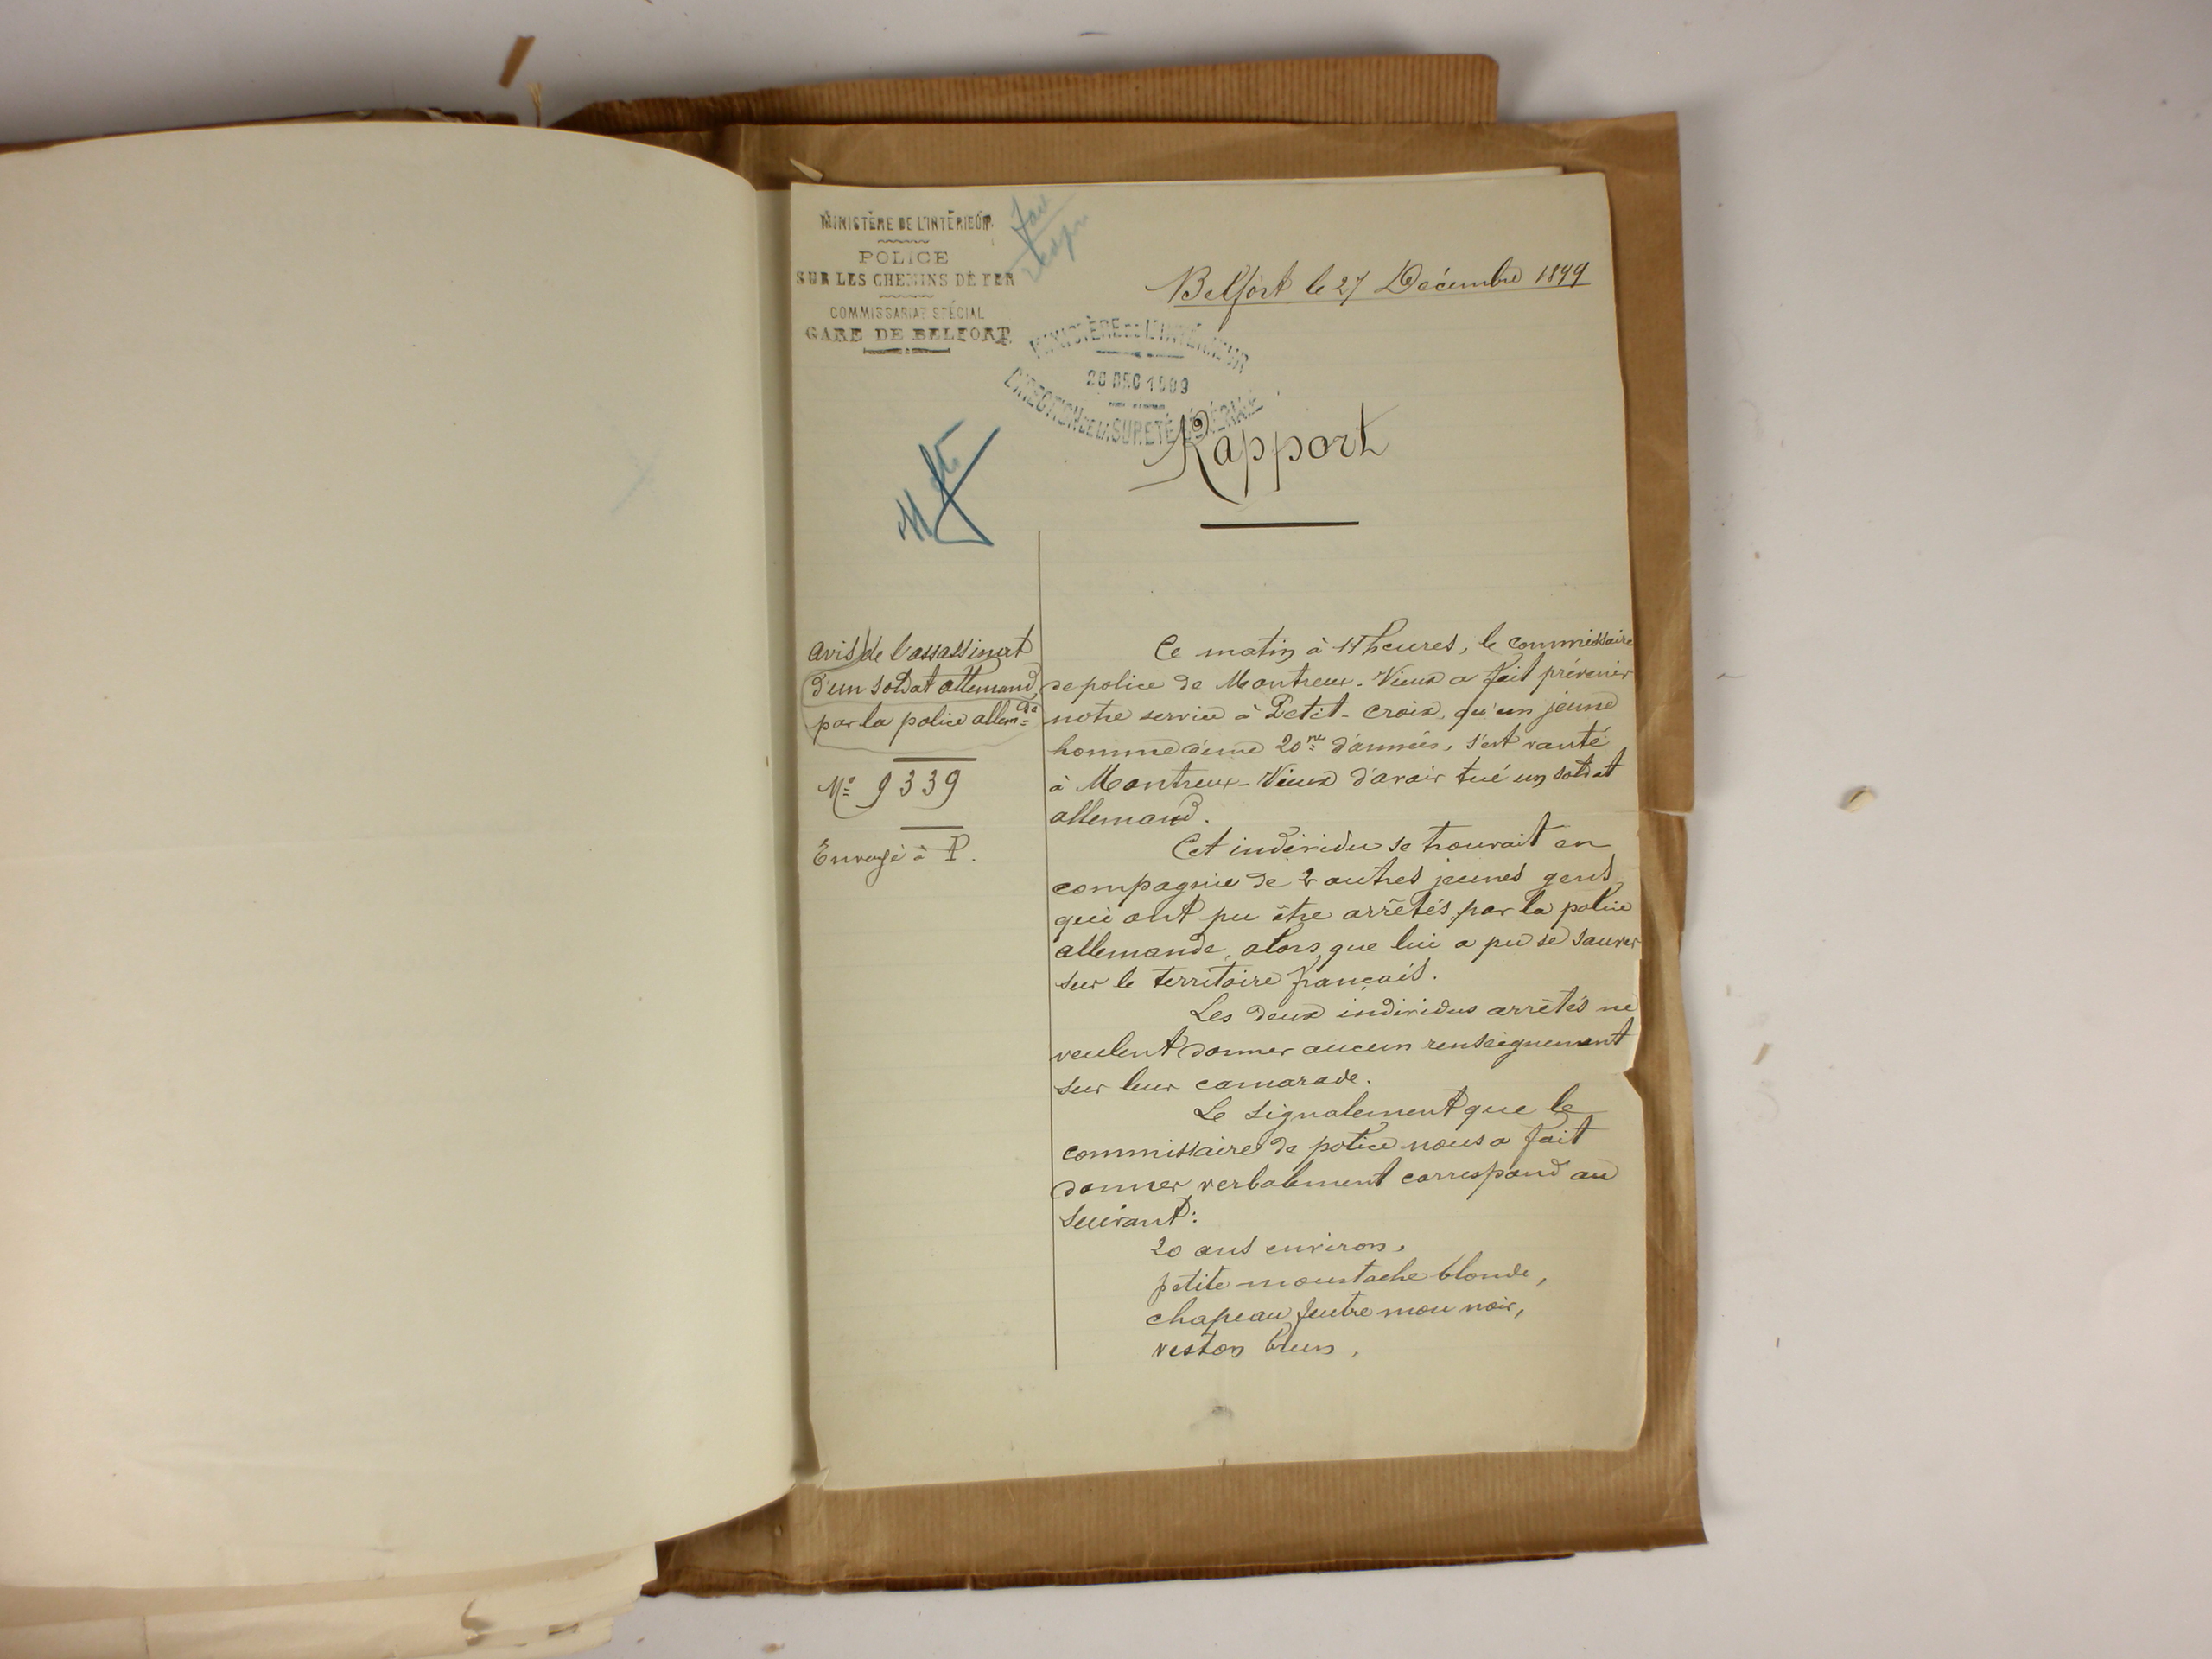 MINISTÈRE DE L'INTÉRIEUR
POLICE
SUR LES CHEMINS DE FER
COMMISSARIAT SPÉCIAL
GARE DE BELFORT
Belfort le 27 Décembre 1899
MINISTÈRE DE L'INTÉRIEUR
28 DEC 1899
DIRECTION DE LA SURETÉ GÉNÉRALE
Rapport
avis de l'assassinat
d'un soldat allemand,
par la police allemde
No 9339
Envoyé à P.
Ce matin à 11 heures, le commissaire
de police de Montreux-Vieux a fait prévenir
notre service à Petit-Croix, qu'un jeune
homme d'une 20ne d'années, s'est vanté
à Montreux-Vieux d'avoir tué un soldat
allemand.
Cet individu se trouvait en
compagnie de 2 autres jeunes gens
qui ont pu être arrêtés par la police
allemande, alors que lui a pu se sauver
sur le territoire français.
Les deux individus arrêtés ne
veulent donner aucun renseignement
sur leur camarade.
Le signalement que le
commissaire de police nous a fait
donner verbalement correspond au
suivant:
20 ans environ,
petite moustache blonde,
chapeau feutre mou noir,
veston brun,